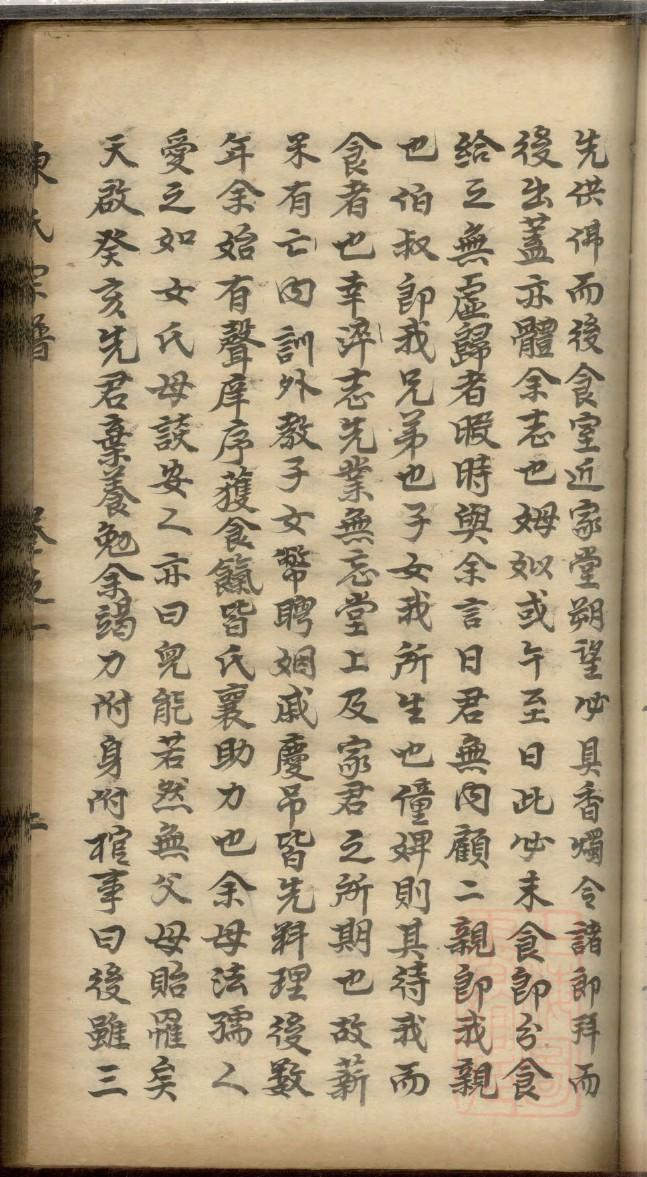 先供佛而後食室近家堂朔望必具香燭令諸郎拜而
後出蓋亦體余志也姆姒或午至日此必未食即分食
給之無虛歸者暇時與余言日君無內顧二親即我親
也伯叔即我兄弟也子女我所生也僮婢則其待我而
食者也幸淬志先業無忘堂上及家君之所期也故薪
米有亡內訓外教子女幣聘姻戚慶吊皆先料理後數
年余始有聲庠序獲食餼皆氏襄助力也余母法孺人
愛之如女氏母談安人亦曰兒能若然無父母貽罹矣
天啟癸亥先君棄養勉余竭力附身附棺事曰後雖三
陳氏宗譜